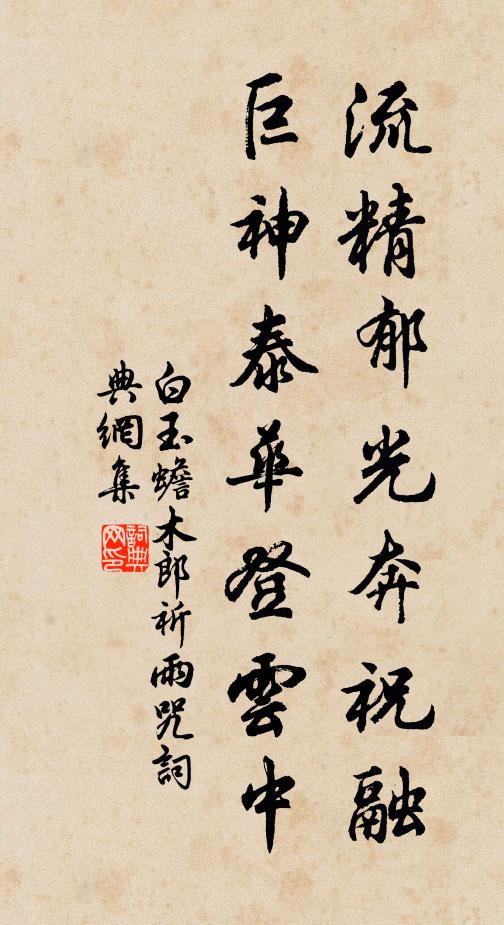 流精郁光奔祝融
巨神泰華登雲中
白玉蟾木郎祈雨咒詞
典網集
詞典
网印